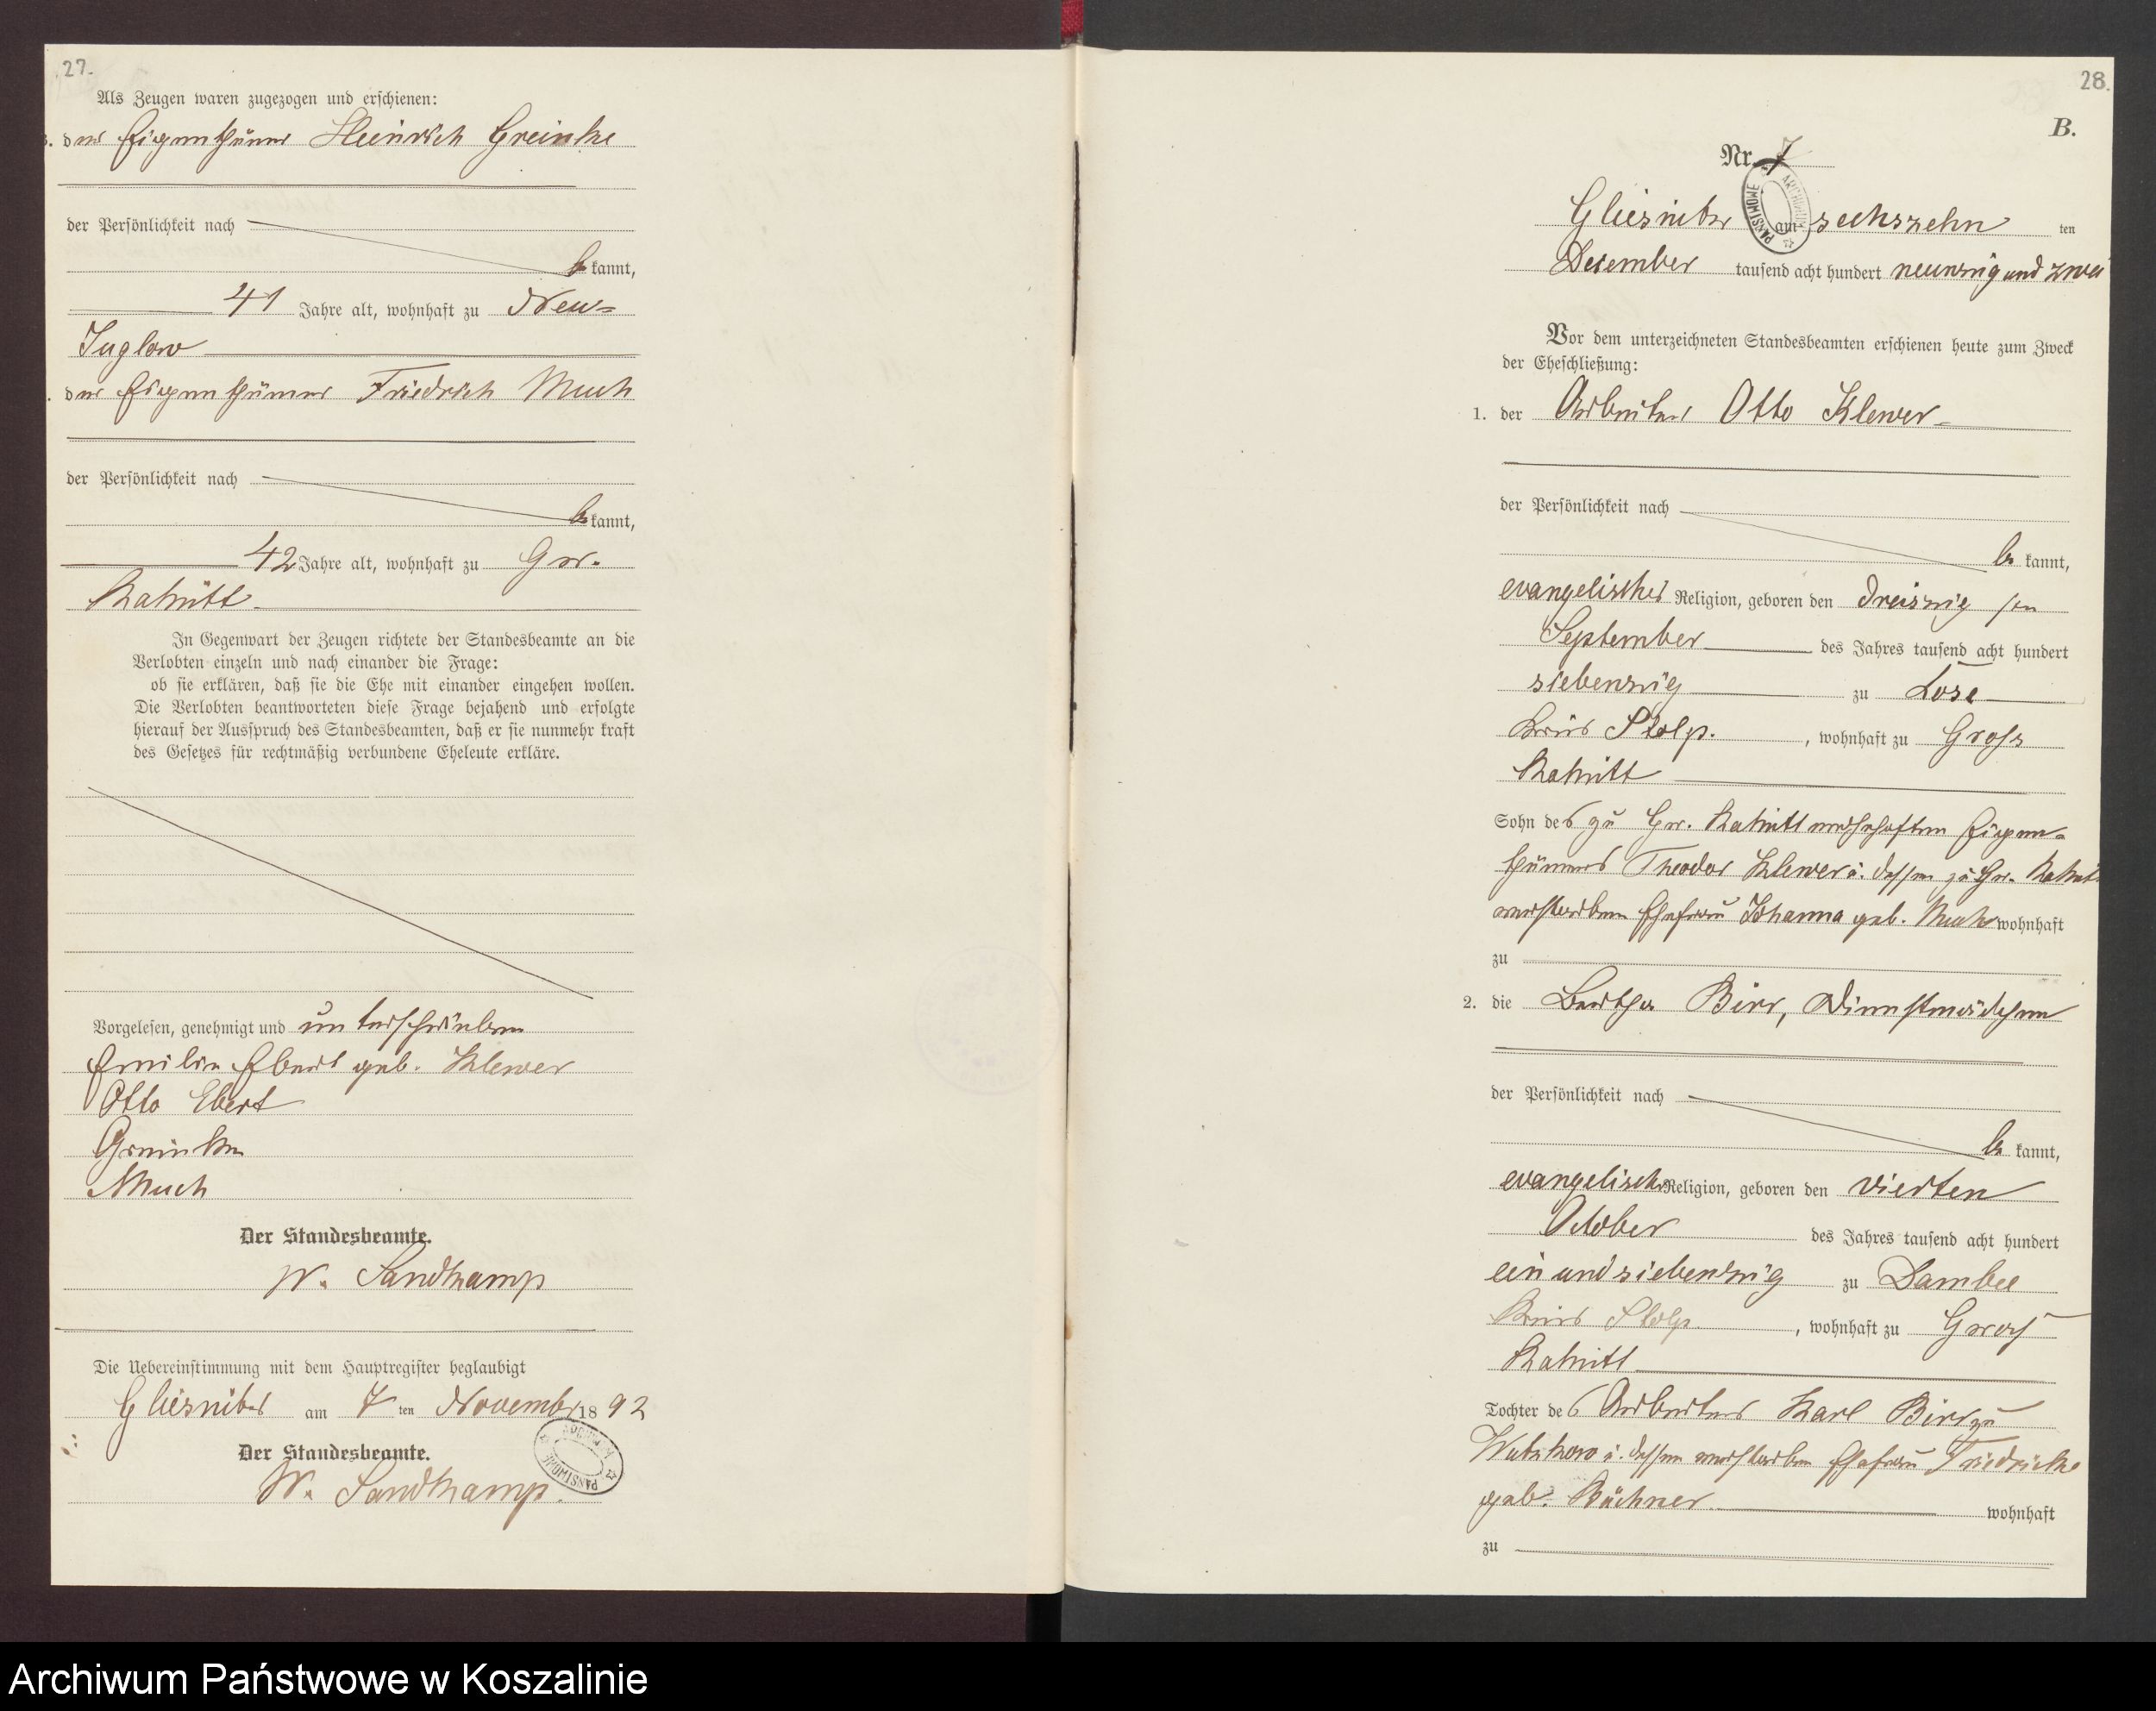 27.
Als Zeugen waren zugezogen und erschienen:
3. der Eigenthümer Heinrich Greinke
der Persönlichkeit nach
be kannt,
41 Jahre alt, wohnhaft zu Neu=
Juglow
. der Eigenthümer Friedrich Much
der Persönlichkeit nach
be kannt,
42 Jahre alt, wohnhaft zu Gr.
Rakitt
In Gegenwart der Zeugen richtete der Standesbeamte an die
Verlobten einzeln und nach einander die Frage:
ob sie erklären, daß sie die Ehe mit einander eingehen wollen.
Die Verlobten beantworteten diese Frage bejahend und erfolgte
hierauf der Ausspruch des Standesbeamten, daß er sie nunmehr kraft
des Gesetzes für rechtmäßig verbundene Eheleute erkläre.
Vorgelesen, genehmigt und unterschrieben
Emilie Ebert geb. Klewer
Otto Ebert
Greinke
Much
Der Standesbeamte.
W. Sandkamp
Die Uebereinstimmung mit dem Hauptregister beglaubigt
Gliesnitz am 7 ten November 18 92
Der Standesbeamte.
W. Sandkamp.
28.
B.
Nr. 7
Gliesnitz am sechszehn ten
December tausend acht hundert neunzig und zwei
Vor dem unterzeichneten Standesbeamten erschienen heute zum Zweck
der Eheschließung:
1. der Arbeiter Otto Klewer
der Persönlichkeit nach
be kannt,
evangelischer Religion, geboren den dreiszig sten
September des Jahres tausend acht hundert
siebenzig zu Lose
Kreis Stolp. , wohnhaft zu Gross
Rakitt
Sohn des zu Gr. Rakitt wohnhaften Eigen=
thümers Theodor Klewer u. dessen zu Gr. Rakitt
verstorbenen Ehefrau Johanna geb. Much wohnhaft
zu
2. die Bertha Birr, Dienstmädchen
der Persönlichkeit nach
be kannt,
evangelischer Religion, geboren den vierten
October des Jahres tausend acht hundert
ein und siebenzig zu Dambee
Kreis Stolp , wohnhaft zu Gross
Rakitt
Tochter des Arbeiters Karl Birr zu
Wutzkow u. dessen verstorben Ehefrau Friedricke
geb. Büchner wohnhaft
zu
Archiwum Państwowe w Koszalinie